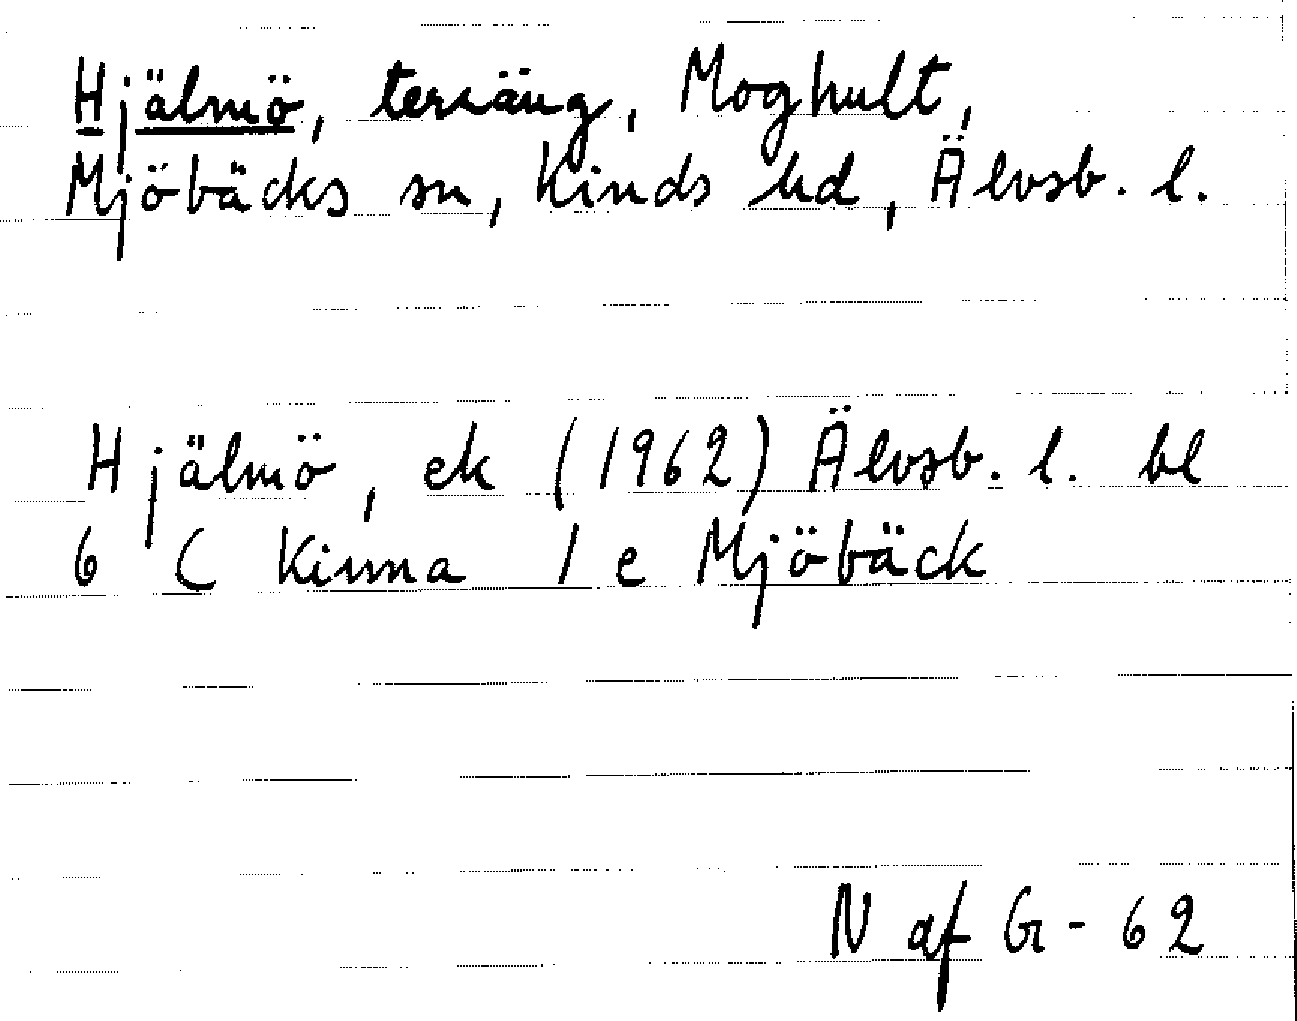 Hjälmö, terräng, Moghult,
Mjöbäcks sn, Kinds hd, Älvsb. l.
Hjälmö, ek (1962) Älvsb. l. bl
6 C Kinna 1 e Mjöbäck
N af G - 62